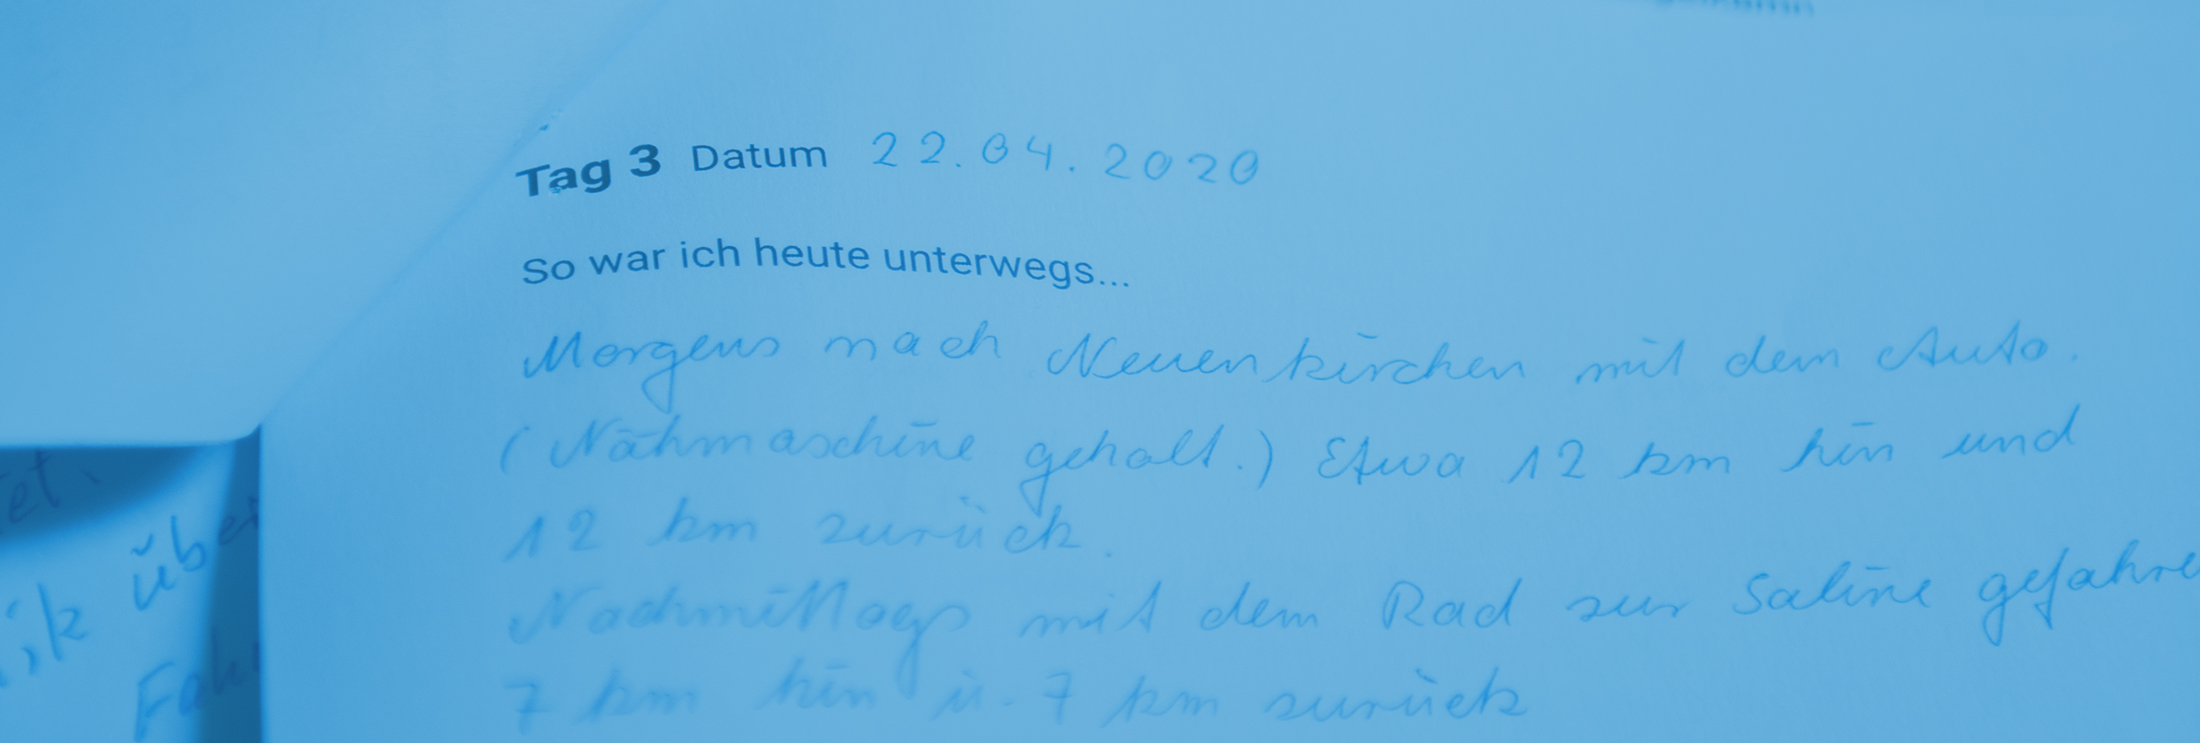 Tag 3 Datum 22.04.2020
So war ich heute unterwegs...
Morgens nach Neuenkirchen mit dem Auto.
(Nähmaschine geholt.) Etwa 12 km hin und
12 km zurück.
Nachmittags mit dem Rad zur Saline gefahre
7 km hin u. 7 km zurück
et.
ik über
Fah